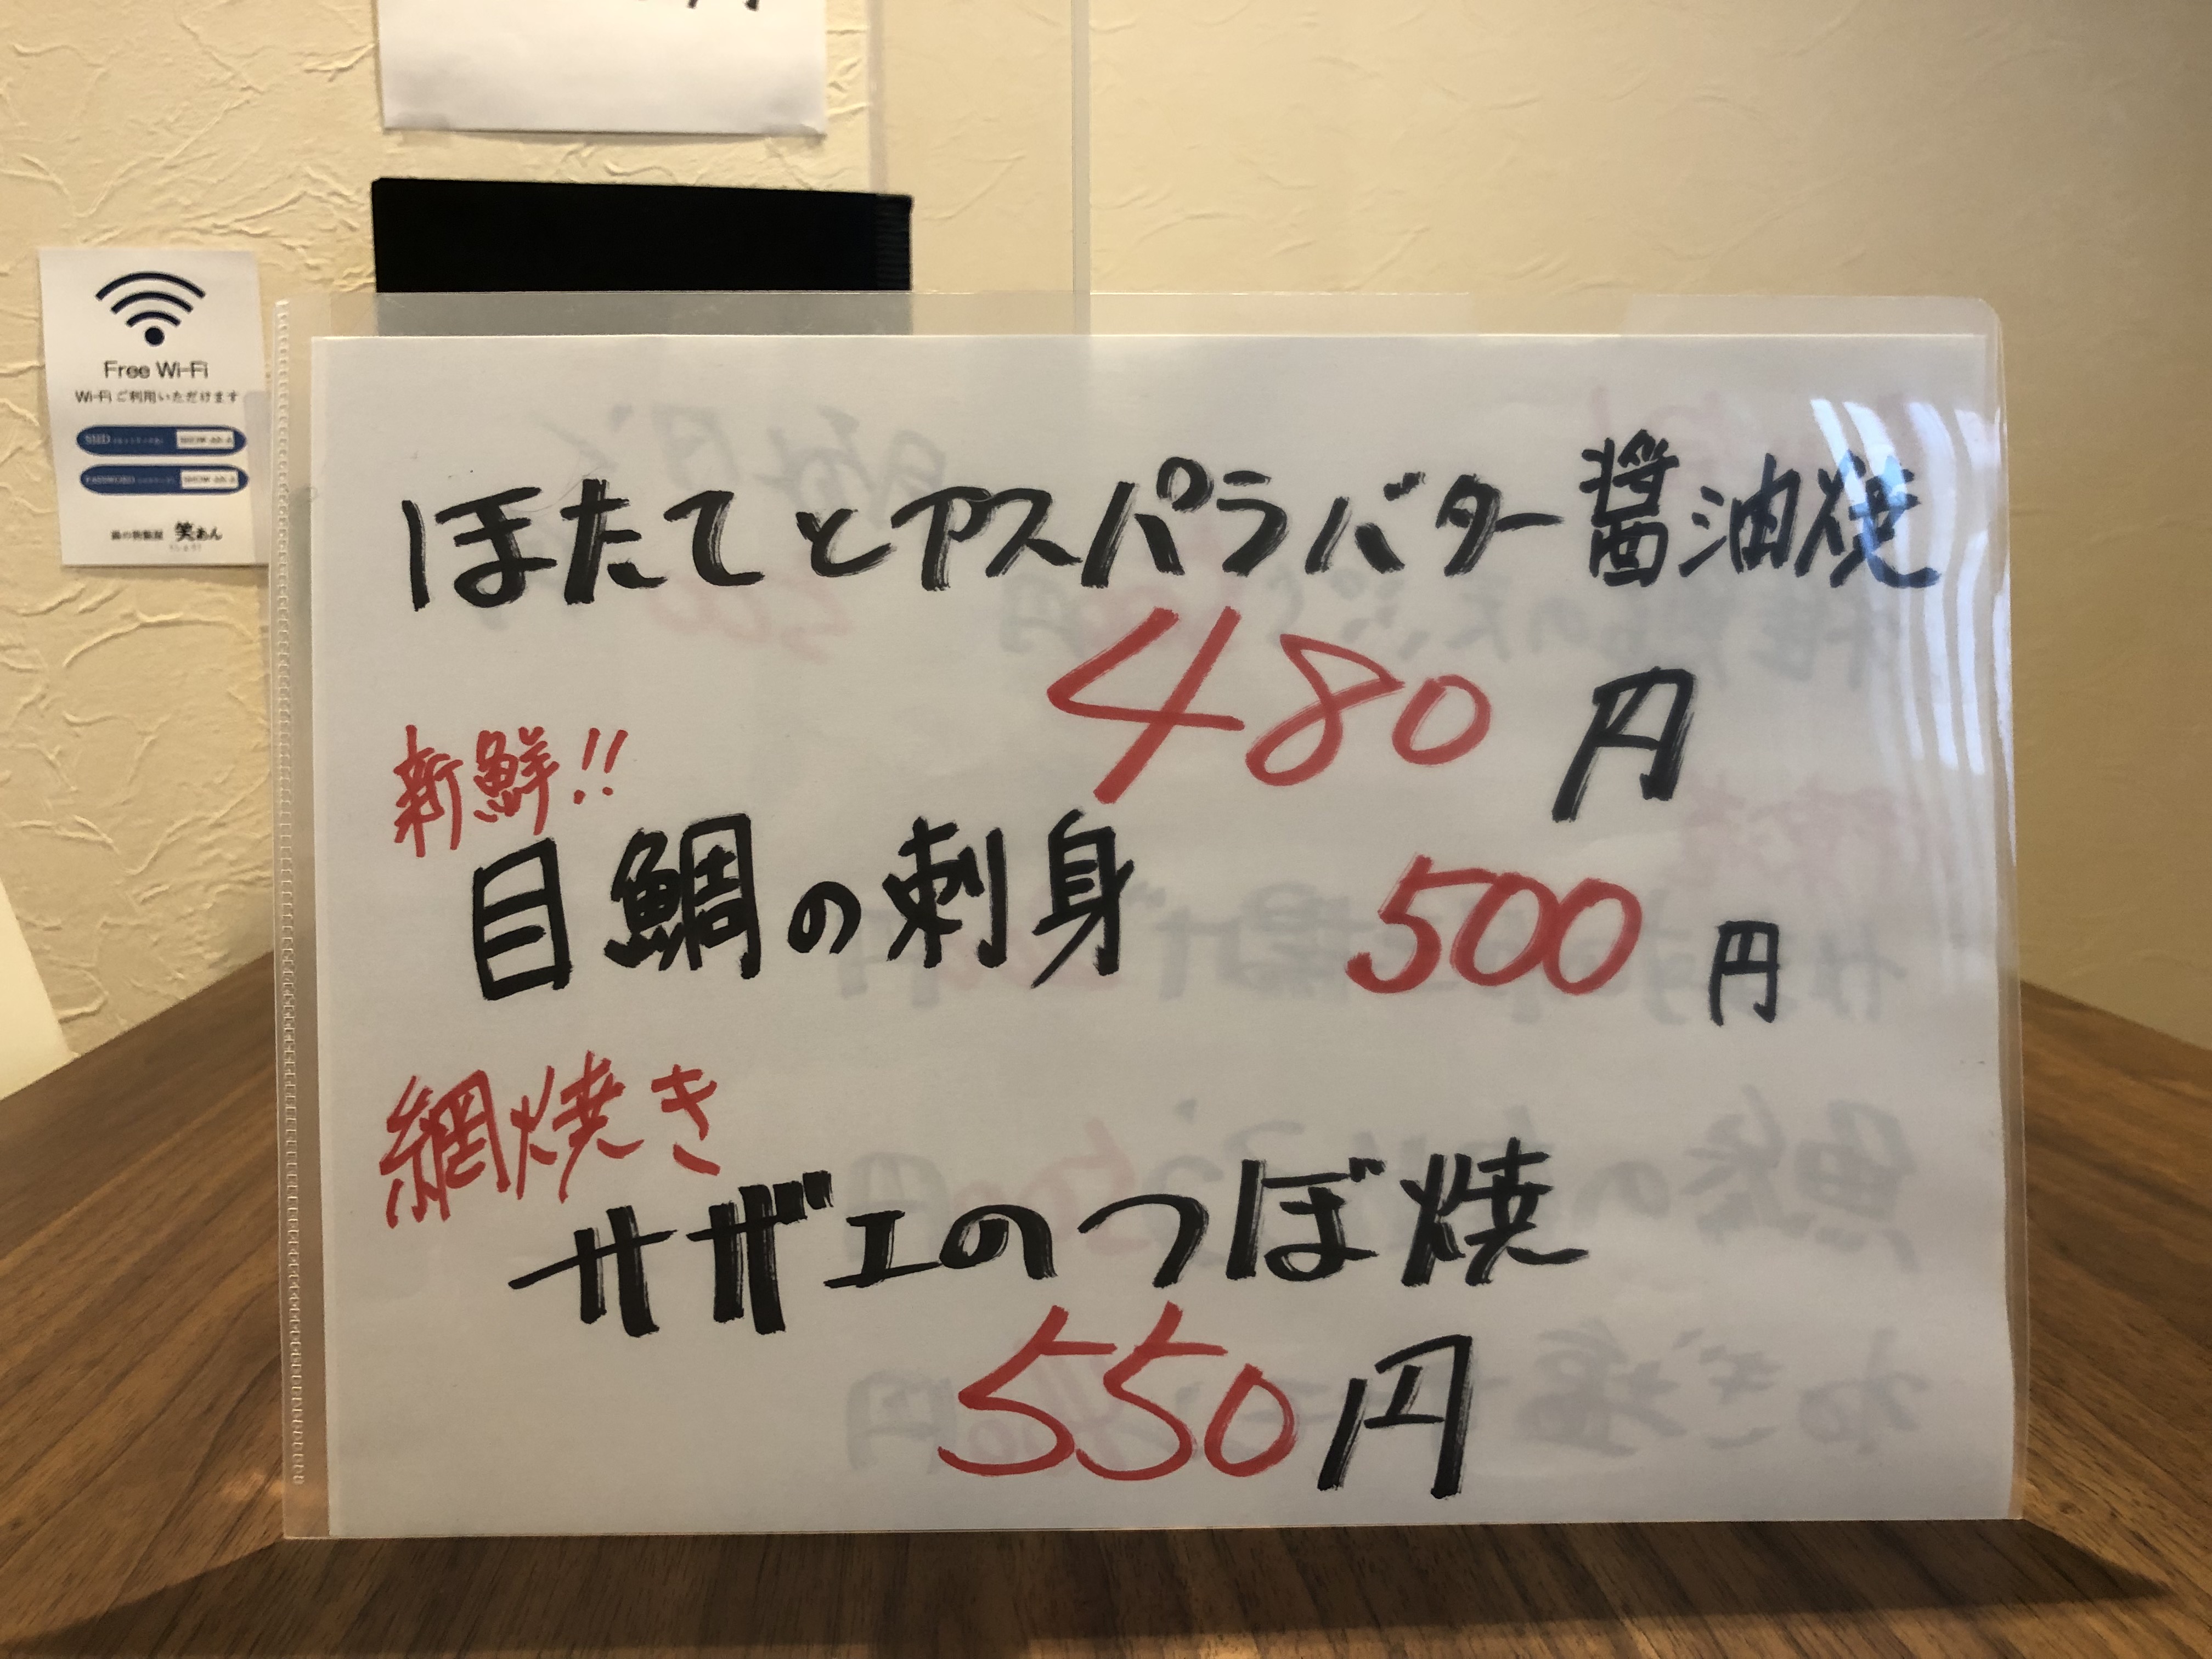 Free Wi-Fi
Wi-Fi ご利用いただけます
SSID
PASSWORD
笑あん
ほたてとアスパラバター醤油焼
480円
新鮮!!
目鯛の刺身 500円
網焼き
サザエのつぼ焼
550円